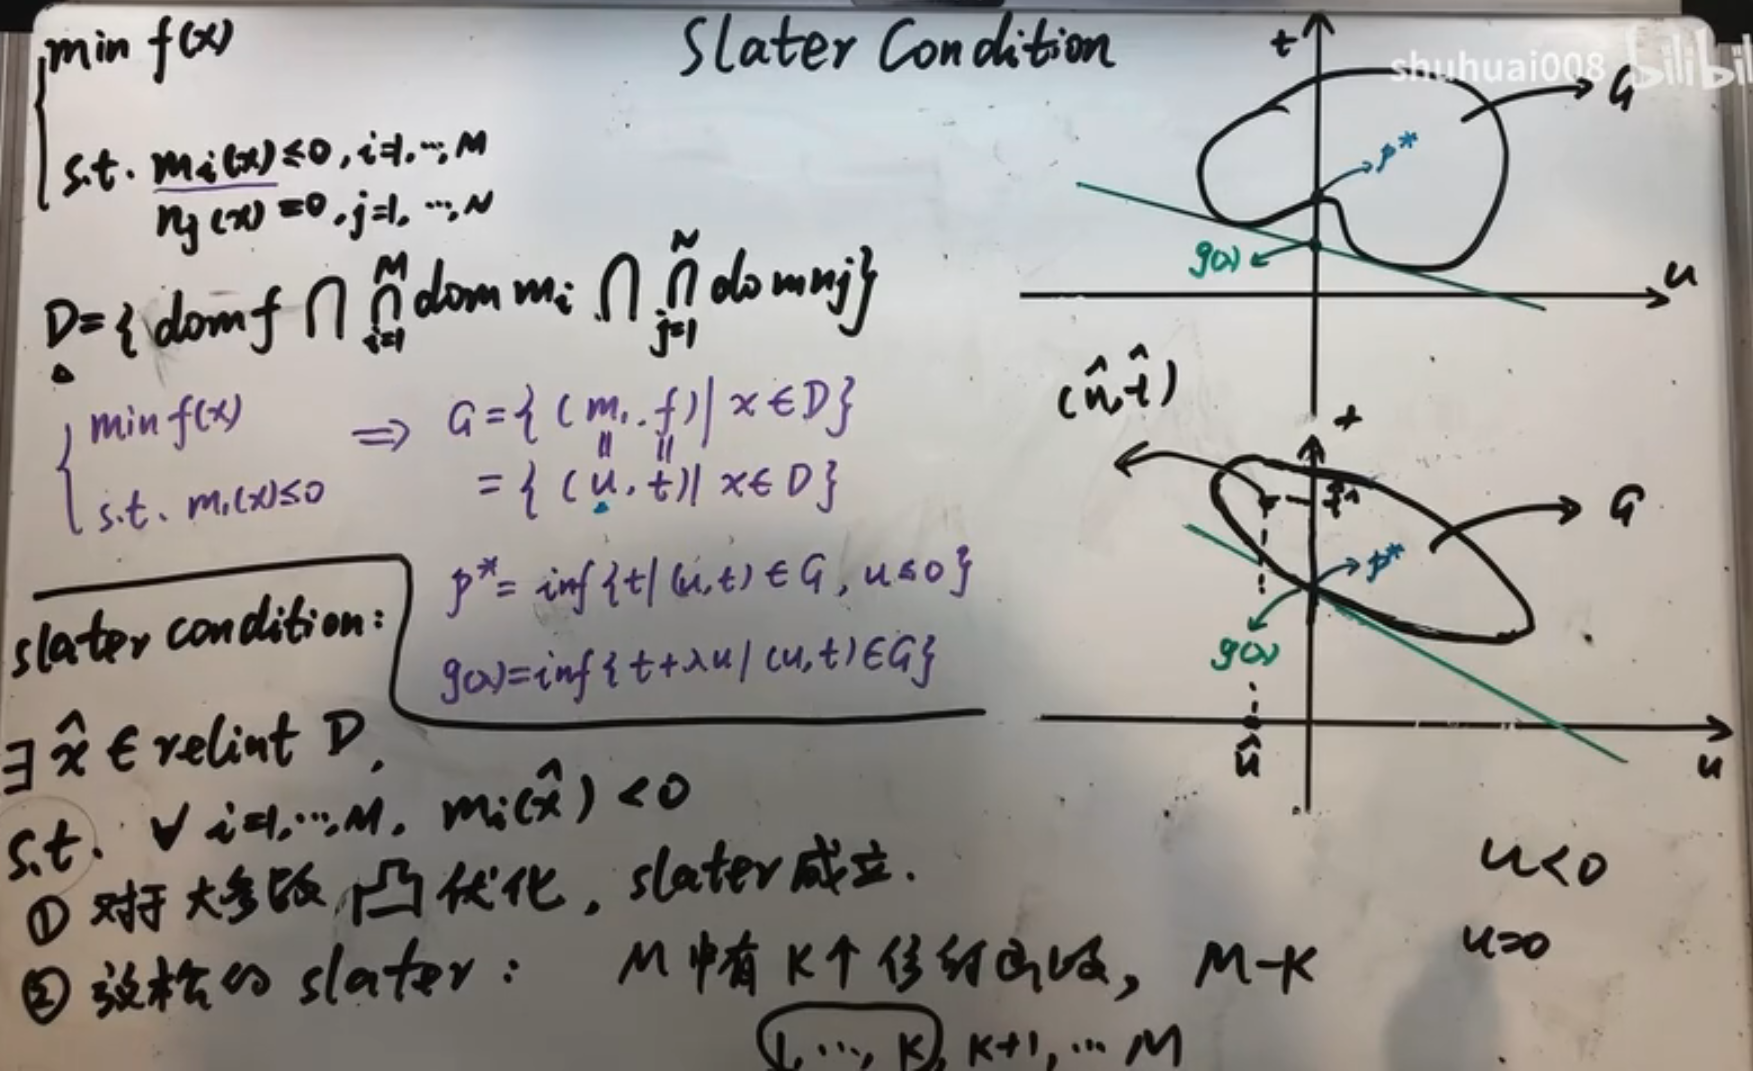 Slater Condition
min f(x)
s.t. mᵢ(x)≤0, i=1,…,M
nⱼ(x)=0, j=1,…,N
D={ domf ∩ ⋂ᵢ₌₁ᴹ dom mᵢ ∩ ⋂ⱼ₌₁ᴺ dom nj}
min f(x)
s.t. m₁(x)≤0
⇒ G={ (m₁, f)| x∈D}
= { (u, t)| x∈D}
p*= inf{t| (u,t)∈G, u≤0}
g(λ)=inf{t+λu| (u,t)∈G}
slater condition:
∃ x̂ ∈ relint D,
s.t. ∀ i=1,…,M, mᵢ(x̂)<0
① 对于大多数凸优化, slater成立.
② 放松的 slater: M中有K个仿射函数, M-K
1, …, K, K+1, … M
shuhuai008 bilibil
t
G
p*
g(λ)
u
(û,t̂)
t
t̂
G
p*
g(λ)
û
u
u<0
u=0